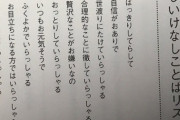 いけなしことばリス
はっきりしてらして
自信がおありで
世渡りにたけていらっしゃる
合理的なことに徹していらっしゃる
贅沢なことがお嫌いなの
おっとりしていらっしゃる
いつもお元気そうで
ふくよかでいらっしゃる
お目立ちになる方でいらっしゃ